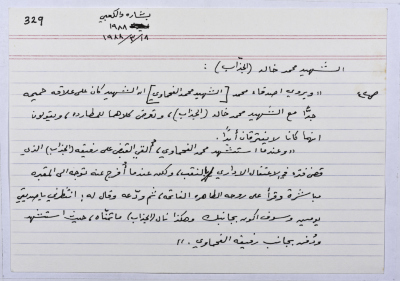 329
بشاره والكعبي
١٩٨٨
١٩٨٨/٢/١٨
الشهيد محمد خاله (الجذّاب) :
« ويروي اصدقاء محمد [الشهيد محمد النحماوي] انه الشهيد كان على علاقة حميمه
جدًّا مع الشهيد محمد خاله (الجذّاب)، وتعرض كلاهما للمطارده، ويقولون
انهما كانا لا يفترقان أبدًا.
« وعندما استشهد محمد النحماوي، أُلقي القبض على رفيقه (الجذاب) الذي
قضى فترة في الاعتقال الاداري بالنقب، ولكنه عندما أُفرج عنه توجه الى المقبره
مباشرة وقرأ على روحه الطاهره الفاتحه، ثم ودّعه وقال له : انتظرني يا صديقي
يومين وسوف اكون بجانبك وهكذا نال (الجذاب) ما تمنّاه، حيث استشهد
ودُفن بجانب رفيقه النحماوي . »